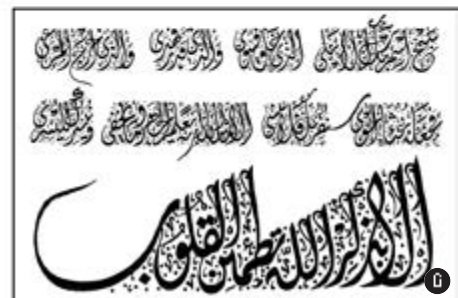 سبح اسم ربك الأعلى الذي خلق فسوى والذي قدر فهدى والذي أخرج المرعى
فجعله غثاء أحوى سنقرئك فلا تنسى إلا ما شاء الله إنه يعلم الجهر وما يخفى ونيسرك لليسرى
ألا بذكر الله تطمئن القلوب